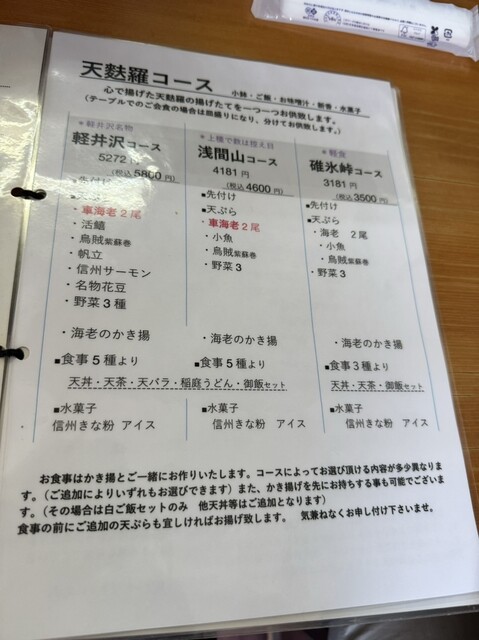 天麩羅コース 小鉢・ご飯・お味噌汁・新香・水菓子
心で揚げた天麩羅の揚げたてを一つ一つお供致します。
(テーブルでのご会食の場合は皿盛りになり、分けてお供致します。)
＊軽井沢名物
軽井沢コース
5272 円
(税込5800 円)
■先付け
■天ぷら
・車海老２尾
・活鱚
・烏賊紫蘇巻
・帆立
・信州サーモン
・名物花豆
・野菜３種
・海老のかき揚
■食事５種より
＊上種で数は控え目
浅間山コース
4181 円
(税込 4600 円)
■先付け
■天ぷら
車海老２尾
・小魚
・烏賊紫蘇巻
・野菜３
・海老のかき揚
■食事５種より
＊軽食
碓氷峠コース
3181 円
(税込3500 円)
■先付け
■天ぷら
・海老 ２尾
・小魚
・烏賊紫蘇巻
・野菜３
・海老のかき揚
■食事３種より
天丼・天茶・天バラ・稲庭うどん・御飯セット
天丼・天茶・御飯セット
■水菓子
信州きな粉 アイス
■水菓子
信州きな粉 アイス
■水菓子
信州きな粉 アイス
お食事はかき揚とご一緒にお作りいたします。コースによってお選び頂ける内容が多少異なりま
す。(ご追加によりいずれもお選びできます）また、かき揚げを先にお持ちする事も可能でございま
す。(その場合は白ご飯セットのみ 他天丼等はご追加となります）
食事の前にご追加の天ぷらも宜しければお揚げ致します。 気兼ねなくお申し付け下さいませ。